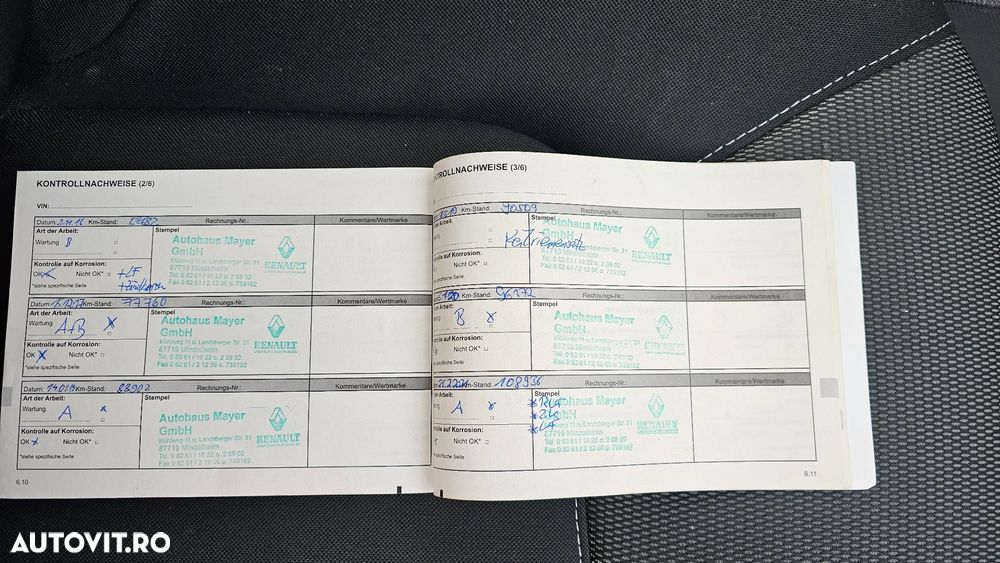 KONTROLLNACHWEISE (2/6)
VIN:
Datum: Km-Stand: Rechnungs-Nr.: Kommentare/Wertmarke
Art der Arbeit:
Wartung B
Kontrolle auf Korrosion:
OK Nicht OK* + LF
*siehe spezifische Seite
Stempel
Autohaus Mayer
GmbH
Mühlweg 11 u. Landsberger Str. 31
87719 Mindelheim
Tel. 0 82 61 / 16 22 o. 2 08 02
Fax 0 82 61 / 2 12 06 o. 739192
RENAULT
Datum: Km-Stand: 77760 Rechnungs-Nr.: Kommentare/Wertmarke
Art der Arbeit:
Wartung A+B
Kontrolle auf Korrosion:
OK Nicht OK*
*siehe spezifische Seite
Stempel
Autohaus Mayer
GmbH
Mühlweg 11 u. Landsberger Str. 31
87719 Mindelheim
Tel. 0 82 61 / 16 22 o. 2 08 02
Fax 0 82 61 / 2 12 06 o. 739192
RENAULT
Datum: 14.01.19 Km-Stand: 88902 Rechnungs-Nr.: Kommentare/Wertmarke
Art der Arbeit:
Wartung A
Kontrolle auf Korrosion:
OK Nicht OK*
*siehe spezifische Seite
Stempel
Autohaus Mayer
GmbH
Mühlweg 11 u. Landsberger Str. 31
87719 Mindelheim
Tel. 0 82 61 / 16 22 o. 2 08 02
Fax 0 82 61 / 2 12 06 o. 739192
RENAULT
6.10
TROLLNACHWEISE (3/6)
Km-Stand: 90509 Rechnungs-Nr.: Kommentare/Wertmarke
er Arbeit:
Stempel
GmbH
Landsberger Str. 31
87719 Mindelheim
Tel. 0 82 61 / 16 22 o. 2 08 02
Fax 0 82 61 / 2 12 06 o. 739192
RENAULT
ntrolle auf Korrosion:
Nicht OK*
e spezifische Seite
Km-Stand: 96172 Rechnungs-Nr.: Kommentare/Wertmarke
er Arbeit:
B
ntrolle auf Korrosion:
Nicht OK*
e spezifische Seite
Stempel
Autohaus Mayer
GmbH
Mühlweg 11 u. Landsberger Str. 31
87719 Mindelheim
Tel. 0 82 61 / 16 22 o. 2 08 02
Fax 0 82 61 / 2 12 06 o. 739192
RENAULT
Km-Stand: 108956 Rechnungs-Nr.: Kommentare/Wertmarke
er Arbeit:
A
ntrolle auf Korrosion:
Nicht OK*
spezifische Seite
Stempel
Mayer
GmbH
Mühlweg 11 u. Landsberger Str. 31
87719 Mindelheim
RENAULT
6.11
AUTOVIT.RO